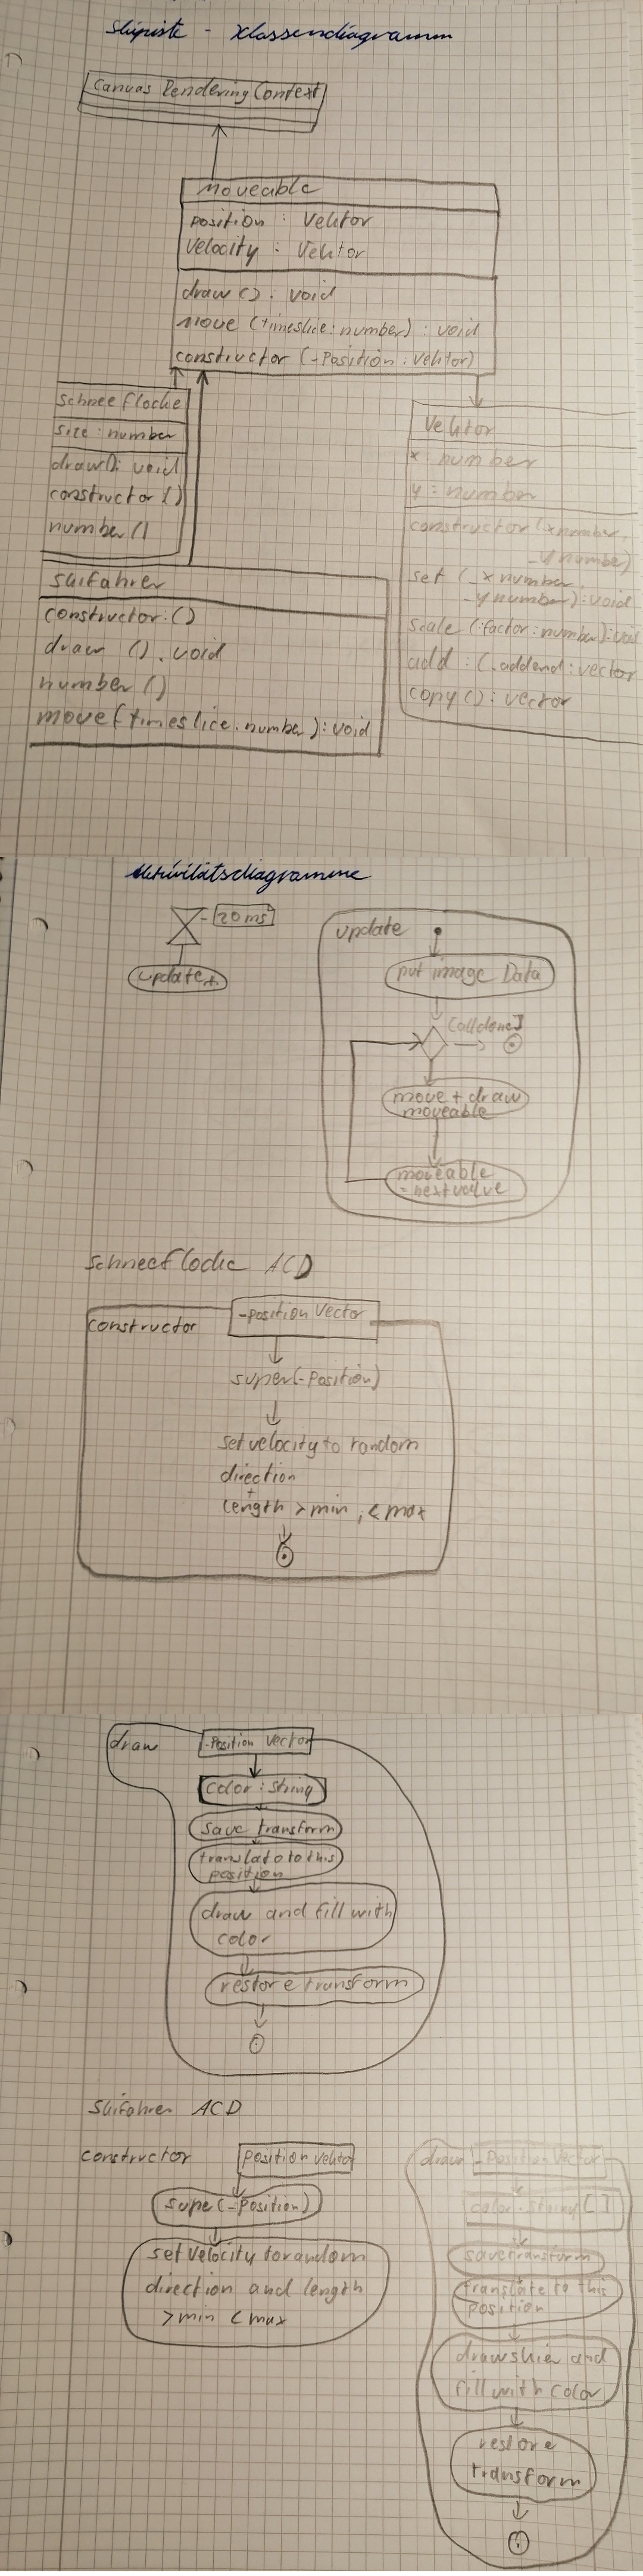 Skipiste - Klassendiagramm
Canvas Rendering Context
Moveable
position : Vektor
Velocity : Vektor
draw () : void
Move (timeslice : number) : void
constructor (-Position : Vektor)
Schneeflocke
size : number
draw() : void
constructor ()
number ()
Skifahrer
constructor : ()
draw () . void
number ()
move (timeslice . number) : void
Vektor
x : number
y : number
constructor (x number,
-y number)
set (_x number
-y number) : void
scale (:factor : number) : void
add : (_addend : vector
copy () : vector
Aktivitätsdiagramme
20 ms
update
update
put image Data
[all done]
move + draw
moveable
moveable
= next value
Schneeflocke ACD
constructor
-position Vector
super (-Position)
set velocity to random
direction
+
length > min , < max
draw
-Position Vector
color : String
save transform
translate to this
position
draw and fill with
color
restore transform
Skifahrer ACD
constructor
position Vektor
supe (-Position)
set Velocity to random
direction and length
> min < max
draw
-Position Vector
color - string []
save transform
translate to this
position
draw skier and
fill with color
restore
transform